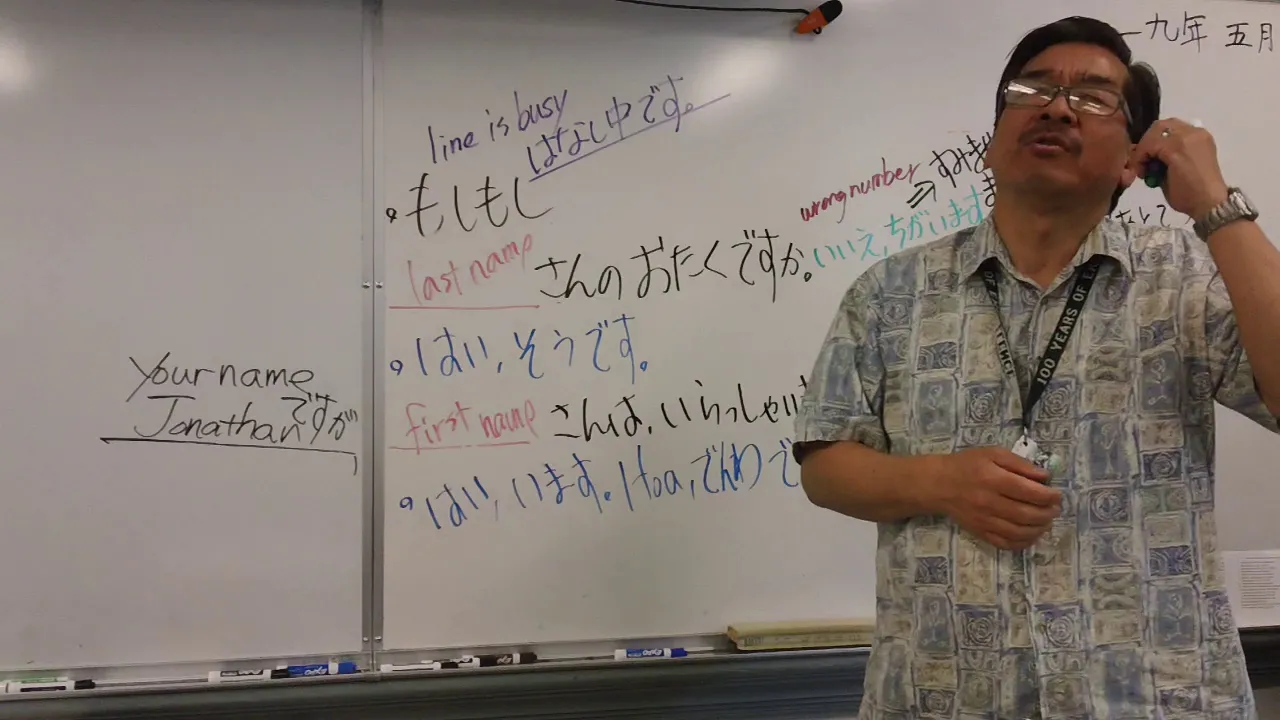 一九年 五月
line is busy
はなし中です。
もしもし
wrong number ⇒ すみま
last name さんのおたくですか。 いいえ, ちがいます
はい, そうです。
first name さんは, いらっしゃい
はい, います。 Hoa, でんわで
Your name
Jonathanですが
100 YEARS OF
EXPO